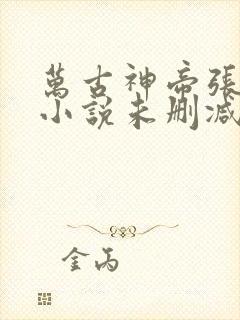 萬古神帝張
小説未删减
金丙